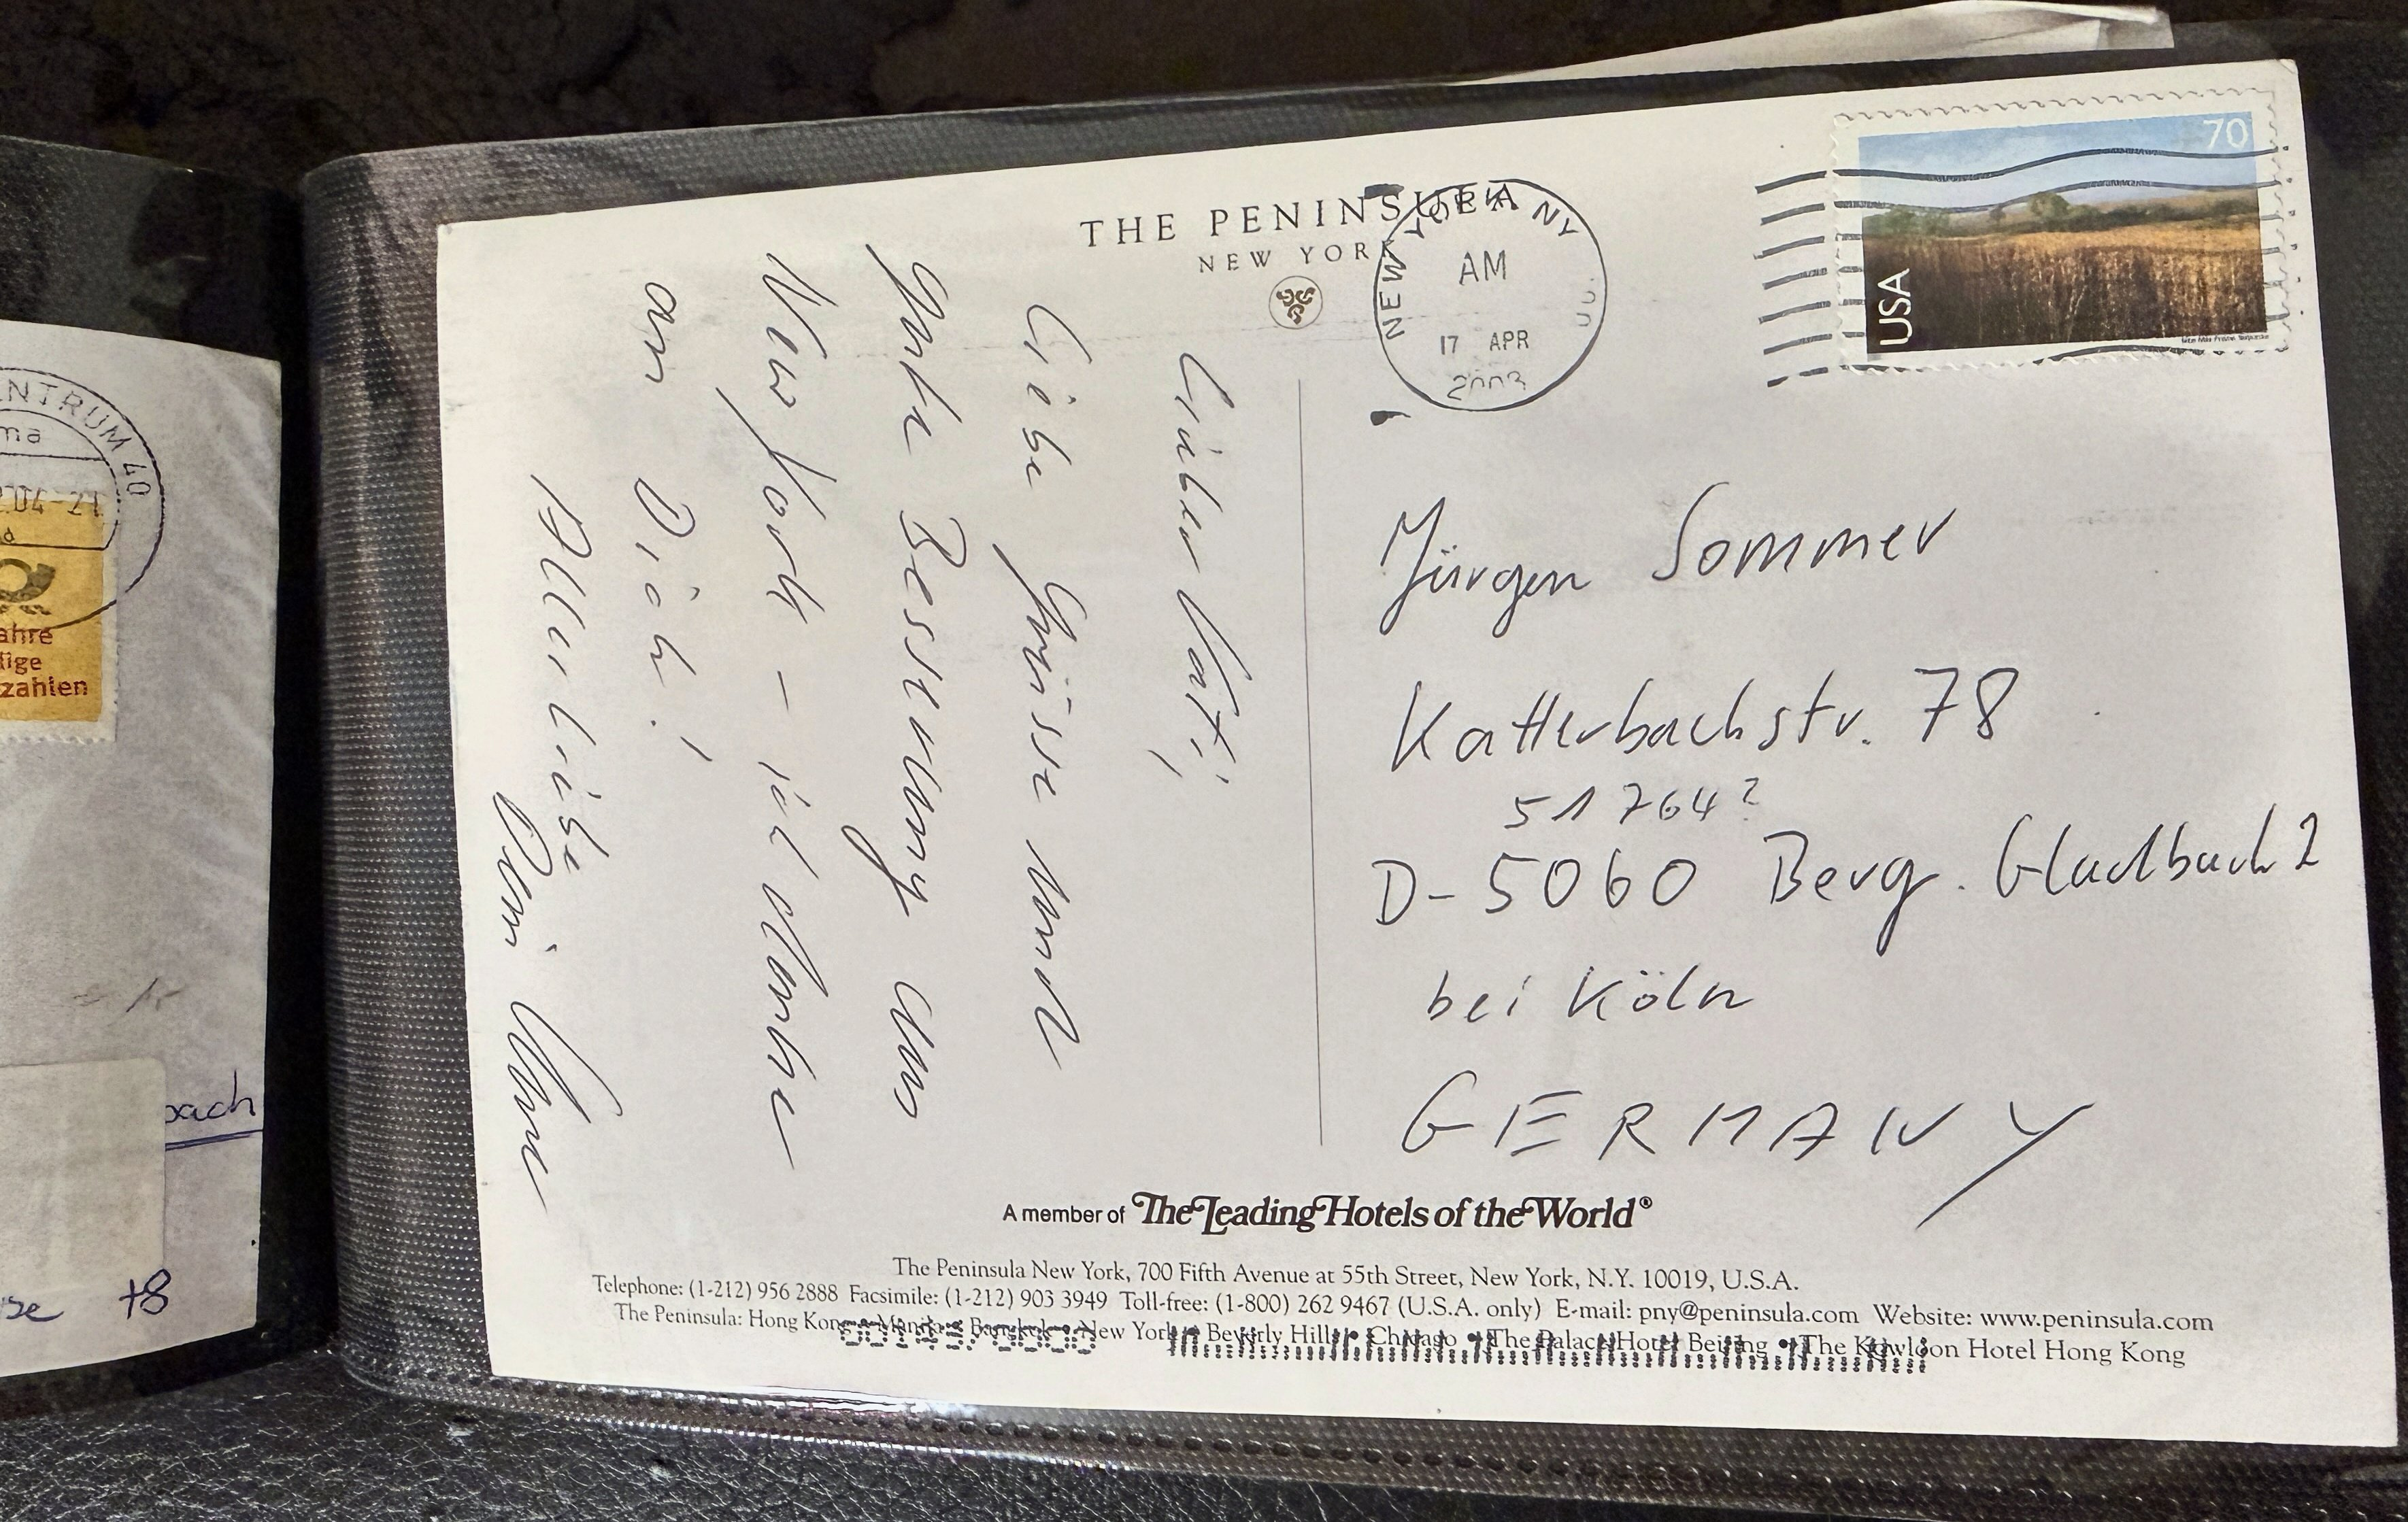 NTRUM 40
ma
.04-21
d
ahre
lige
zahlen
bach
se 78
THE PENINSULA
NEW YORK
NEW YORK NY
AM
17 APR
2003
70
USA
Lieber Vati,
liebe Grüsse und
gute Besserung aus
New York - ich denke
an Dich!
Alles Liebe
Dein Uwe
Jürgen Sommer
Katterbachstr. 78
51764?
D-5060 Berg. Gladbach 2
bei Köln
GERMANY
A member of The Leading Hotels of the World®
The Peninsula New York, 700 Fifth Avenue at 55th Street, New York, N.Y. 10019, U.S.A.
Telephone: (1-212) 956 2888 Facsimile: (1-212) 903 3949 Toll-free: (1-800) 262 9467 (U.S.A. only) E-mail: pny@peninsula.com Website: www.peninsula.com
The Peninsula: Hong Kong • Manila • Bangkok • New York • Beverly Hills • Chicago • The Palace Hotel Beijing • The Kowloon Hotel Hong Kong